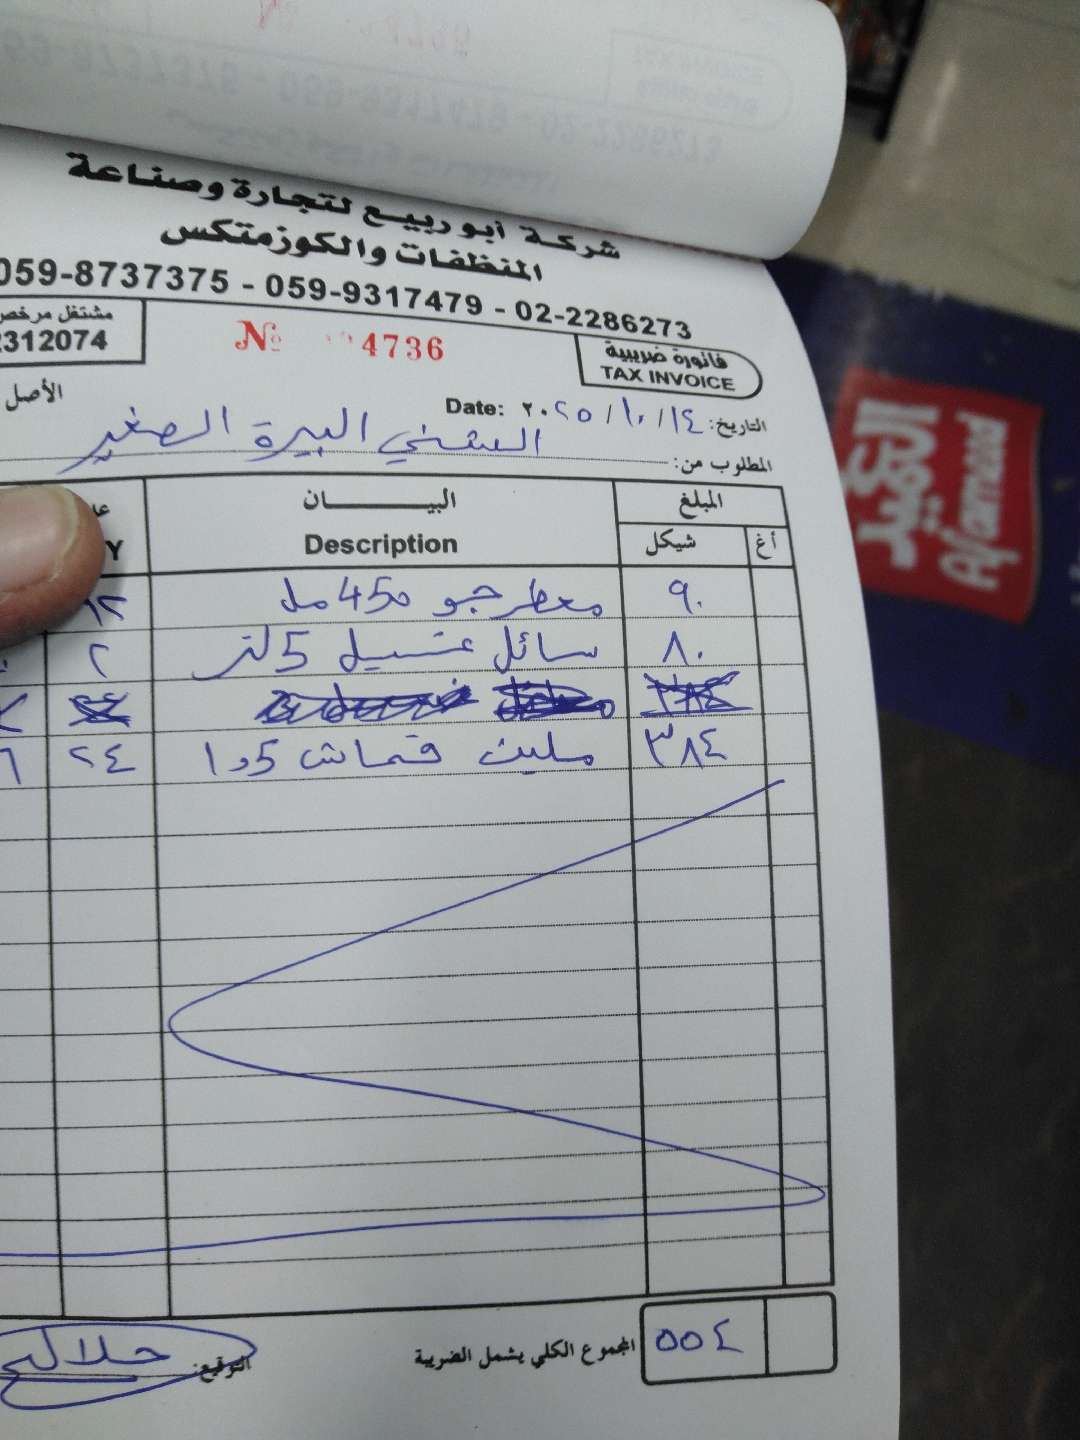 شركة أبو ربيع لتجارة وصناعة
المنظفات والكوزمتكس
059-8737375 - 059-9317479 - 02-2286273
مشتغل مرخص
2312074
№ 4736
فاتورة ضريبية
TAX INVOICE
الأصل
التاريخ: ٢٠٢٥/١٠/١٤ Date:
المطلوب من: الشني البيرة الصغير
المبلغ البيـــــــان
أغ شيكل Description
٩٠ معطر جو 450 مل ١٢
٨٠ سائل غسيل 5 لتر ٢
٣٨٤ ملين قماش 1,5 ٢٤
المجموع الكلي يشمل الضريبة ٥٥٤
التوقيع:
العميد
Al'ameed